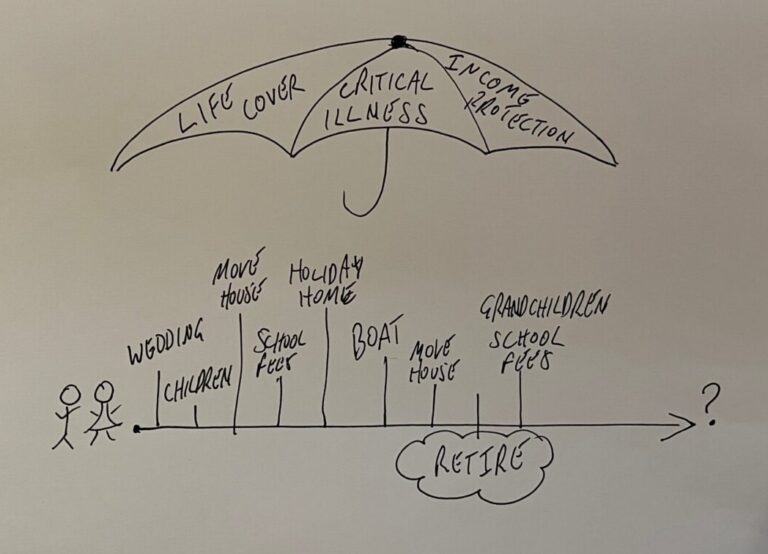 LIFE COVER
CRITICAL
ILLNESS
INCOME
PROTECTION
WEDDING
CHILDREN
MOVE
HOUSE
SCHOOL
FEES
HOLIDAY
HOME
BOAT
MOVE
HOUSE
RETIRE
GRANDCHILDREN
SCHOOL
FEES
?